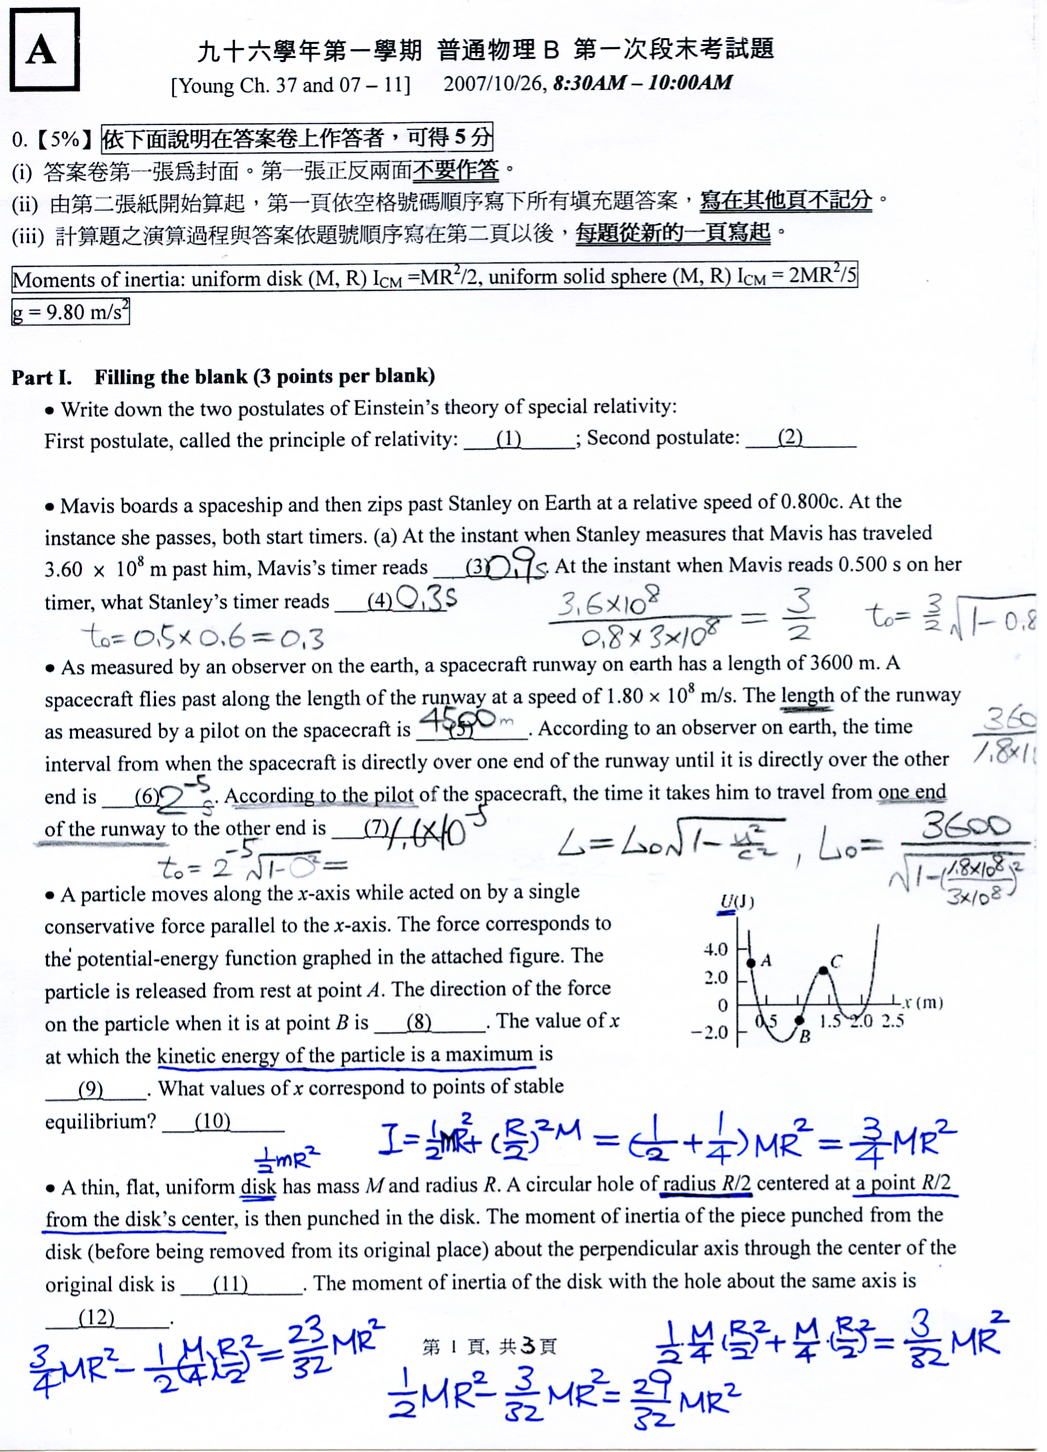 A
九十六學年第一學期 普通物理 B 第一次段末考試題
[Young Ch. 37 and 07 – 11] 2007/10/26, 8:30AM – 10:00AM
0.【5%】依下面說明在答案卷上作答者，可得 5 分
(i) 答案卷第一張爲封面。第一張正反兩面不要作答。
(ii) 由第二張紙開始算起，第一頁依空格號碼順序寫下所有填充題答案，寫在其他頁不記分。
(iii) 計算題之演算過程與答案依題號順序寫在第二頁以後，每題從新的一頁寫起。
Moments of inertia: uniform disk (M, R) I_CM =MR²/2, uniform solid sphere (M, R) I_CM = 2MR²/5
g = 9.80 m/s²
Part I. Filling the blank (3 points per blank)
• Write down the two postulates of Einstein's theory of special relativity:
First postulate, called the principle of relativity: (1) ; Second postulate: (2)
• Mavis boards a spaceship and then zips past Stanley on Earth at a relative speed of 0.800c. At the
instance she passes, both start timers. (a) At the instant when Stanley measures that Mavis has traveled
3.60 × 10⁸ m past him, Mavis's timer reads (3) 0.9s. At the instant when Mavis reads 0.500 s on her
timer, what Stanley's timer reads (4) 0.3s
3.6×10⁸ / 0.8×3×10⁸ = 3/2 t₀= 3/2 √1-0.8
t₀= 0.5×0.6=0.3
• As measured by an observer on the earth, a spacecraft runway on earth has a length of 3600 m. A
spacecraft flies past along the length of the runway at a speed of 1.80 × 10⁸ m/s. The length of the runway
as measured by a pilot on the spacecraft is (5) 4500m . According to an observer on earth, the time
360 / 1.8×1
interval from when the spacecraft is directly over one end of the runway until it is directly over the other
end is (6) 2⁻⁵ s. According to the pilot of the spacecraft, the time it takes him to travel from one end
of the runway to the other end is (7) 1.6×10⁻⁵
t₀= 2⁻⁵ √1- =
L=L₀√1-u²/c² , L₀= 3600 / √1-(1.8×10⁸/3×10⁸)²
• A particle moves along the x-axis while acted on by a single
conservative force parallel to the x-axis. The force corresponds to
the potential-energy function graphed in the attached figure. The
particle is released from rest at point A. The direction of the force
on the particle when it is at point B is (8) . The value of x
at which the kinetic energy of the particle is a maximum is
(9) . What values of x correspond to points of stable
equilibrium? (10)
U(J)
4.0
A
C
2.0
0
x (m)
0.5
1.5 2.0 2.5
−2.0
B
I=½MR²+(R/2)²M = (½+¼)MR² = ¾MR²
½mR²
• A thin, flat, uniform disk has mass M and radius R. A circular hole of radius R/2 centered at a point R/2
from the disk's center, is then punched in the disk. The moment of inertia of the piece punched from the
disk (before being removed from its original place) about the perpendicular axis through the center of the
original disk is (11) . The moment of inertia of the disk with the hole about the same axis is
(12) .
¾MR²-½(M/4)(R/2)²=23/32 MR²
第 1 頁, 共 3 頁
½ M/4 (R/2)²+M/4·(R/2)²=3/32 MR²
½MR²-3/32 MR²=29/32 MR²